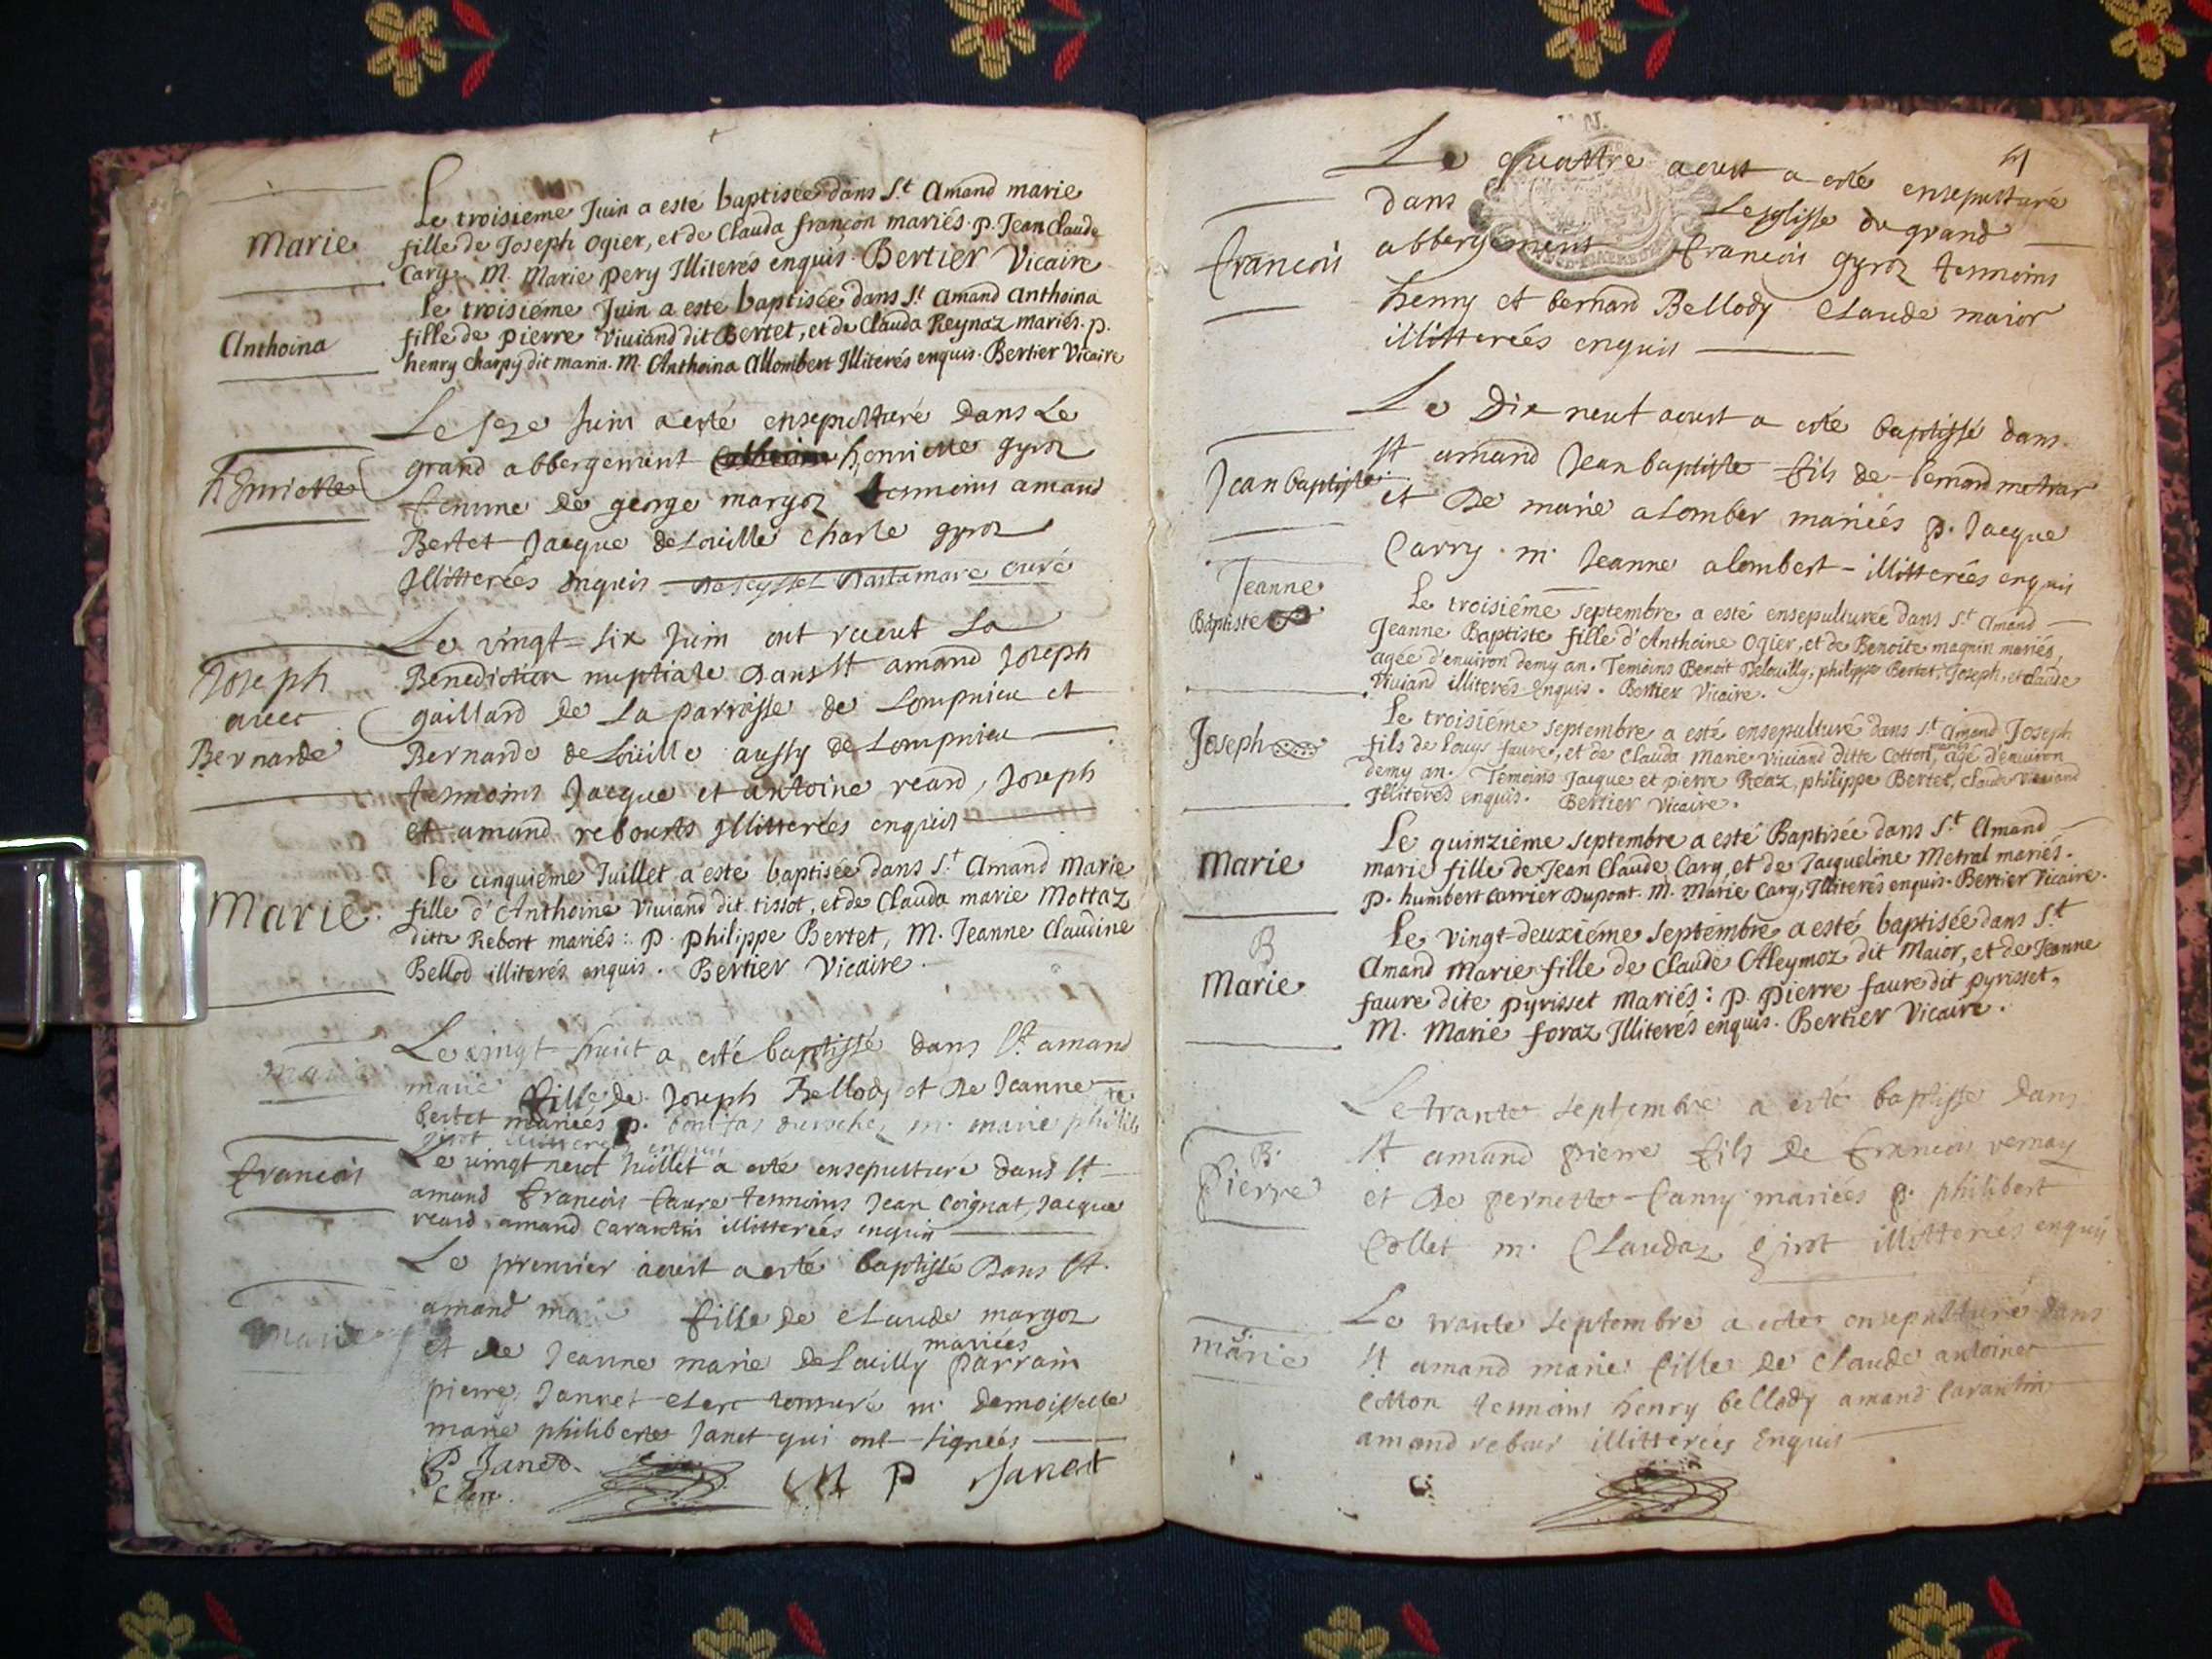 Le troisieme Juin a esté baptisée dans S.t Amand marie
Marie
fille de Joseph Ogier, et de Clauda françon mariés. p. Jean Claude
Cary. M. Marie pery Illiterés enquis. Bertier Vicaire
Le troisiéme Juin a esté baptisée dans S.t Amand Anthoina
Anthoina
fille de pierre Viuiand dit Bertet, et de Clauda Reynaz mariés. p.
henry Charpy dit marin. M. Anthoina Allombert Illiterés enquis. Bertier Vicaire
Le seze Juin a esté ensepulturé Dans Le
henriette
grand abbergement henriette gyroz
femme de george margoz tesmoins amand
Bertet Jacque deLouille Charle gyroz
Jllitterées Enquis De Seyssel curé
Le vingt-six Juin ont receut La
Joseph
auec
Bernarde
Benediction nuptiale Dans St amand Joseph
gaillard de La parroisse de Lompnieu et
Bernarde de Loüille aussy de Lompnieu
tesmoins Jacque et antoine reard, Joseph
et amand rebourts Jllitterées enquis
Le cinquieme Juillet a esté baptisée dans S.t Amand Marie
Marie
fille d'Anthoine Viuiand dit tissot, et de Clauda marie Mottaz
ditte Rebort mariés: p. philippe Bertet, M. Jeanne Claudine
Bellod illiterés enquis. Bertier Vicaire.
Le vingt-huit a esté baptissé dans St. amand
marie
marie fille de Joseph Bellody et De Jeanne
bertet mariées p. m. marie
Le vingt neuf Juillet a esté ensepulturé dans St
francois
amand francois faure tesmoins Jean Coignat, Jacque
reard amand Carantin illitterées enquis
Le premier aoust a esté baptissé Dans St.
marie
amand fille de cLaude margoz
et de Jeanne marie deLouilly mariées parrain
pierre Jannet cLerc tonsuré m. demoisselle
marie philiberte Janet qui ont signées
P Janet
Clerc.
M P Janet
Le quattre aoust a esté ensepulturé
dans Lesglisse du grand
francois
abbergement francois gyroz tesmoins
henry et bernard Bellody cLaude maior
illitterées enquis
Le Dix neuf aoust a esté baptissé dans
Jean baptiste
St amand Jean baptiste fils de bernard metrar
et De marie aLomber mariées p. Jacque
Carry. m. Jeanne aLombert - illitterées enquis
Jeanne
Baptiste
Le troisiéme septembre a esté ensepulturée dans S.t Amand
Jeanne Baptiste fille d'Anthoine Ogier, et de Benoite magnin mariés,
agée d'enuiron demy an. Temoins Benoit Delouilly, philippe Bertet, Joseph, et claude
Viuiand illiterés Enquis. Bertier Vicaire.
Le troisiéme septembre a esté ensepulturé dans S.t Amand Joseph
Joseph
fils de Louys faure, et de Clauda Marie Viuiand ditte Cotton, mariés agé d'enuiron
demy an. Temoins Jacque et pierre Reaz, philippe Bertet, Claude Viuiand
Illiterés enquis. Bertier Vicaire.
Le quinziéme septembre a esté Baptisée dans S.t Amand
Marie
marie fille de Jean Claude Cary, et de Jacqueline Metral mariés.
p. humbert Carrier Dupont. M. Marie Cary, Illiterés enquis. Bertier Vicaire.
Le vingt-deuxiéme septembre a esté baptisée dans S.t
B
Marie
Amand Marie fille de Claude Aleymoz dit Maior, et de Jeanne
faure dite pyrisset mariés: p. pierre faure dit pyrisset,
M. Marie foraz Illiterés enquis. Bertier Vicaire.
Le trante septembre a esté baptisse dans
B.
Pierre
St amand pierre fils de francois vernay
et De pernette Carry mariées p. philibert
Collet m. CLaudaz girot illitterées enquis
Le trante septembre a estee ensepulturé dans
S.
marie
St amand marie fille de cLaude antoine
Cotton tesmoins henry bellody amand Carantin
amand rebour illitterées Enquis